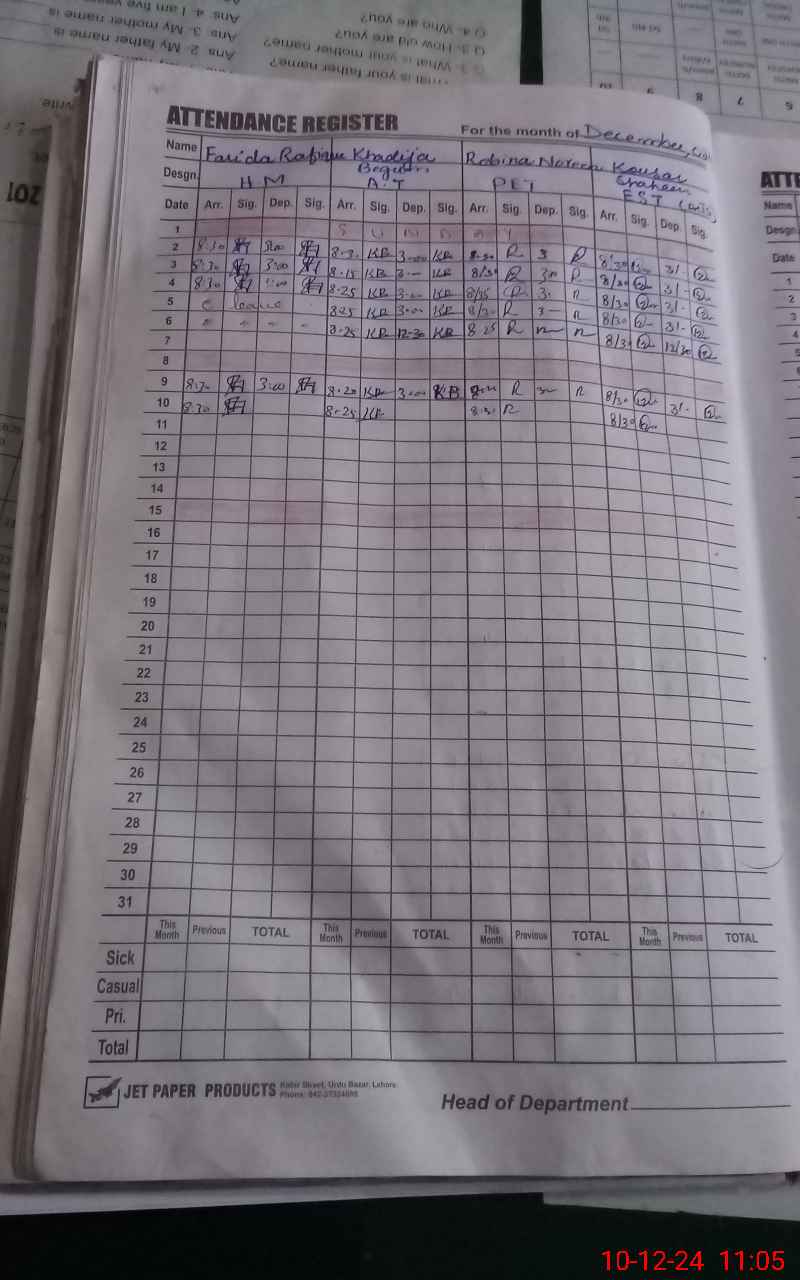 Ans. 4. I am five years
Ans. 3. My mother name is
Ans. 2. My father name is
Q.4. Who are you?
Q.3. How old are you?
What is your mother name?
What is your father name?
ATTENDANCE REGISTER For the month of December,
Name Farida Khadija Robina Noreen Kousar
Begum Shaheen
Desgn. H.M A.T PET EST
Date Arr. Sig. Dep. Sig. Arr. Sig. Dep. Sig. Arr. Sig. Dep. Sig. Arr. Sig. Dep. Sig.
1 S U N D A Y
2 8:30 3:00 8-3 KB 3-00 KB 8-30 R 3 R 8/30 3/-
3 8:30 3:00 8-15 KB 3- KB 8/30 R 300 R 8/30 3/-
4 8:30 1:00 8-25 KB 3-00 KB 8/35 R 3- R 8/30 3/-
5 C leave 825 KB 3-00 KB 8/30 R 3- R 8/30 3/-
6 " " " " 8-25 KB 12-30 KB 8 25 R 12- R 8/30 12/30
7
8
9 8:30 3:00 8-20 KB 3-00 KB R 3- R 8/30 3/-
10 8:30 8-25 KB 8-30 R 8/30
11
12
13
14
15
16
17
18
19
20
21
22
23
24
25
26
27
28
29
30
31
This Month Previous TOTAL This Month Previous TOTAL This Month Previous TOTAL This Month Previous TOTAL
Sick
Casual
Pri.
Total
JET PAPER PRODUCTS Kabir Street, Urdu Bazar, Lahore.
Head of Department
ATTE
Name
Desgn
Date
1
2
3
4
10-12-24 11:05